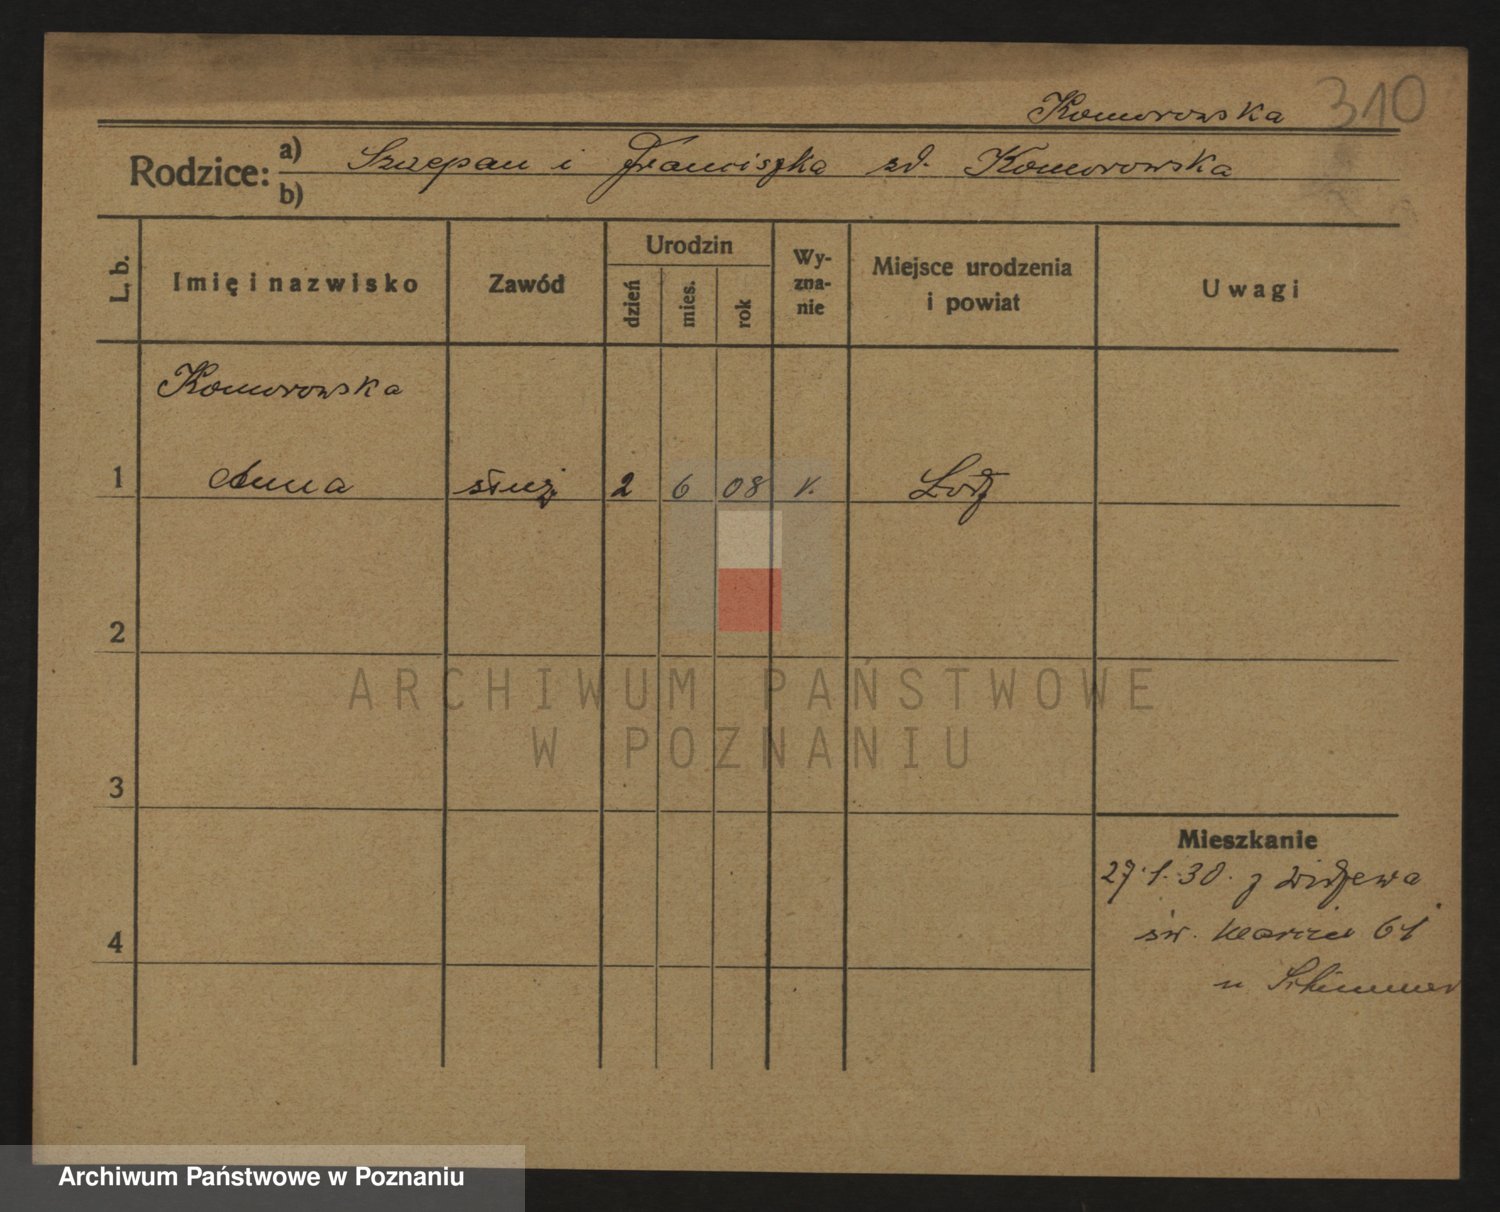 Komorowska 310
Rodzice: a) Szczepan i Franciszka zd. Komorowska
b)
L. b.
Imię i nazwisko
Zawód
Urodzin
dzień
mies.
rok
Wy-
zna-
nie
Miejsce urodzenia
i powiat
Uwagi
Komorowska
1 Anna służ. 2 6 08 k. Łódź
2
3
4
ARCHIWUM PAŃSTWOWE
W POZNANIU
Mieszkanie
27.1.30. z Widzewa
św. Marcin 61
u
Archiwum Państwowe w Poznaniu